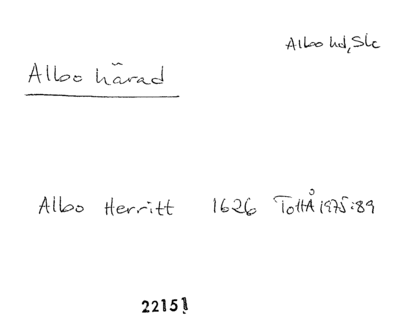 Albo hd, Sk
Albo härad
Albo Herritt 1626 TottÅ 1975:89
22151